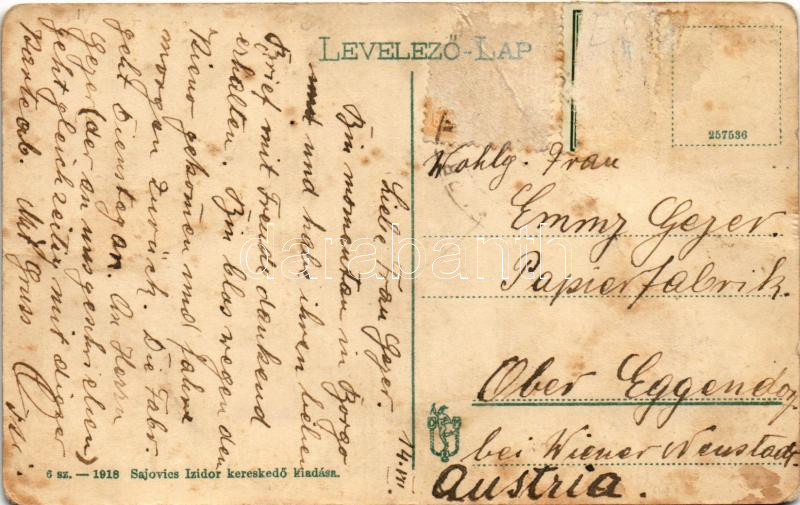 LEVELEZŐ-LAP
257536
Wohlg. Frau
Emmy Geyer.
Papierfabrik.
Ober Eggendorf
bei Wiener Neustadt
Austria.
14.VII.
Liebe Frau Geyer
Bin momentan in Borgo
und habe ihren lieben
Brief mit Freude dankend
erhalten. Bin blos wegen den
Kieno gekomen und fahre
morgen zurück. Die Fabr.
geht Dienstag an. An Herrn
Geyer (der an uns geschrieben)
geht gleichzeitig mit dieser
Karte ab. Mit Gruss
6 sz. — 1918 Sajovics Izidor kereskedő kiadása.
darabanth.com